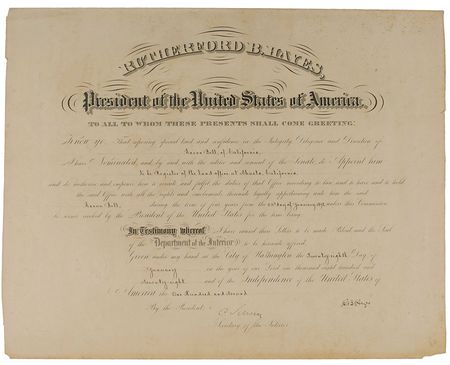 RUTHERFORD B. HAYES,
President of the United States of America,
TO ALL TO WHOM THESE PRESENTS SHALL COME GREETING:
Know ye, That reposing special trust and confidence in the Integrity Diligence and Discretion of
Aaron Bell, of California,
I have Nominated, and by and with the advice and consent of the Senate, do Appoint him
to be Register of the Land Office at Shasta, California,
and do authorize and empower him to execute and fulfil the duties of that Office according to law and to have and to hold
the said Office with all the rights and emoluments thereunto legally appertaining unto him the said
Aaron Bell, during the term of four years from the of January 1878 under this Commission
the President of the United States for the time being.
In Testimony whereof I have caused these Letters to be made Patent and the Seal
of the Department of the Interior to be hereunto affixed.
Given under my hand at the City of Washington the Twenty eighth Day of
January in the year of our Lord one thousand eight hundred and
Seventy eight and of the Independence of the United States of
America the One Hundred and Second
By the President: R B Hayes
C. Schurz
Secretary of the Interior